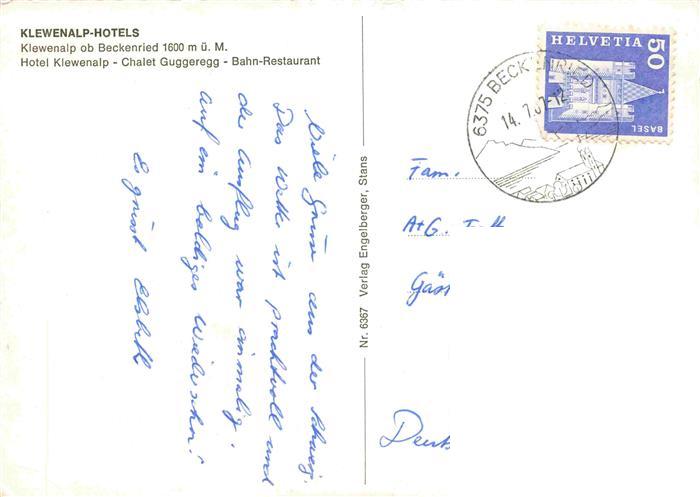 KLEWENALP-HOTELS
Klewenalp ob Beckenried 1600 m ü. M.
Hotel Klewenalp - Chalet Guggeregg - Bahn-Restaurant
Viele Grüsse aus der Schweiz.
Das Wetter ist prachtvoll und
der Ausflug war einmalig!
Auf ein baldiges Wiedersehn!
Es grüsst Elsbeth
Nr. 6367 Verlag Engelberger, Stans
HELVETIA 50
BASEL
6375 BECKENRIED
14. 7.
-12
Fam.
A+G.
Gäss
Deut